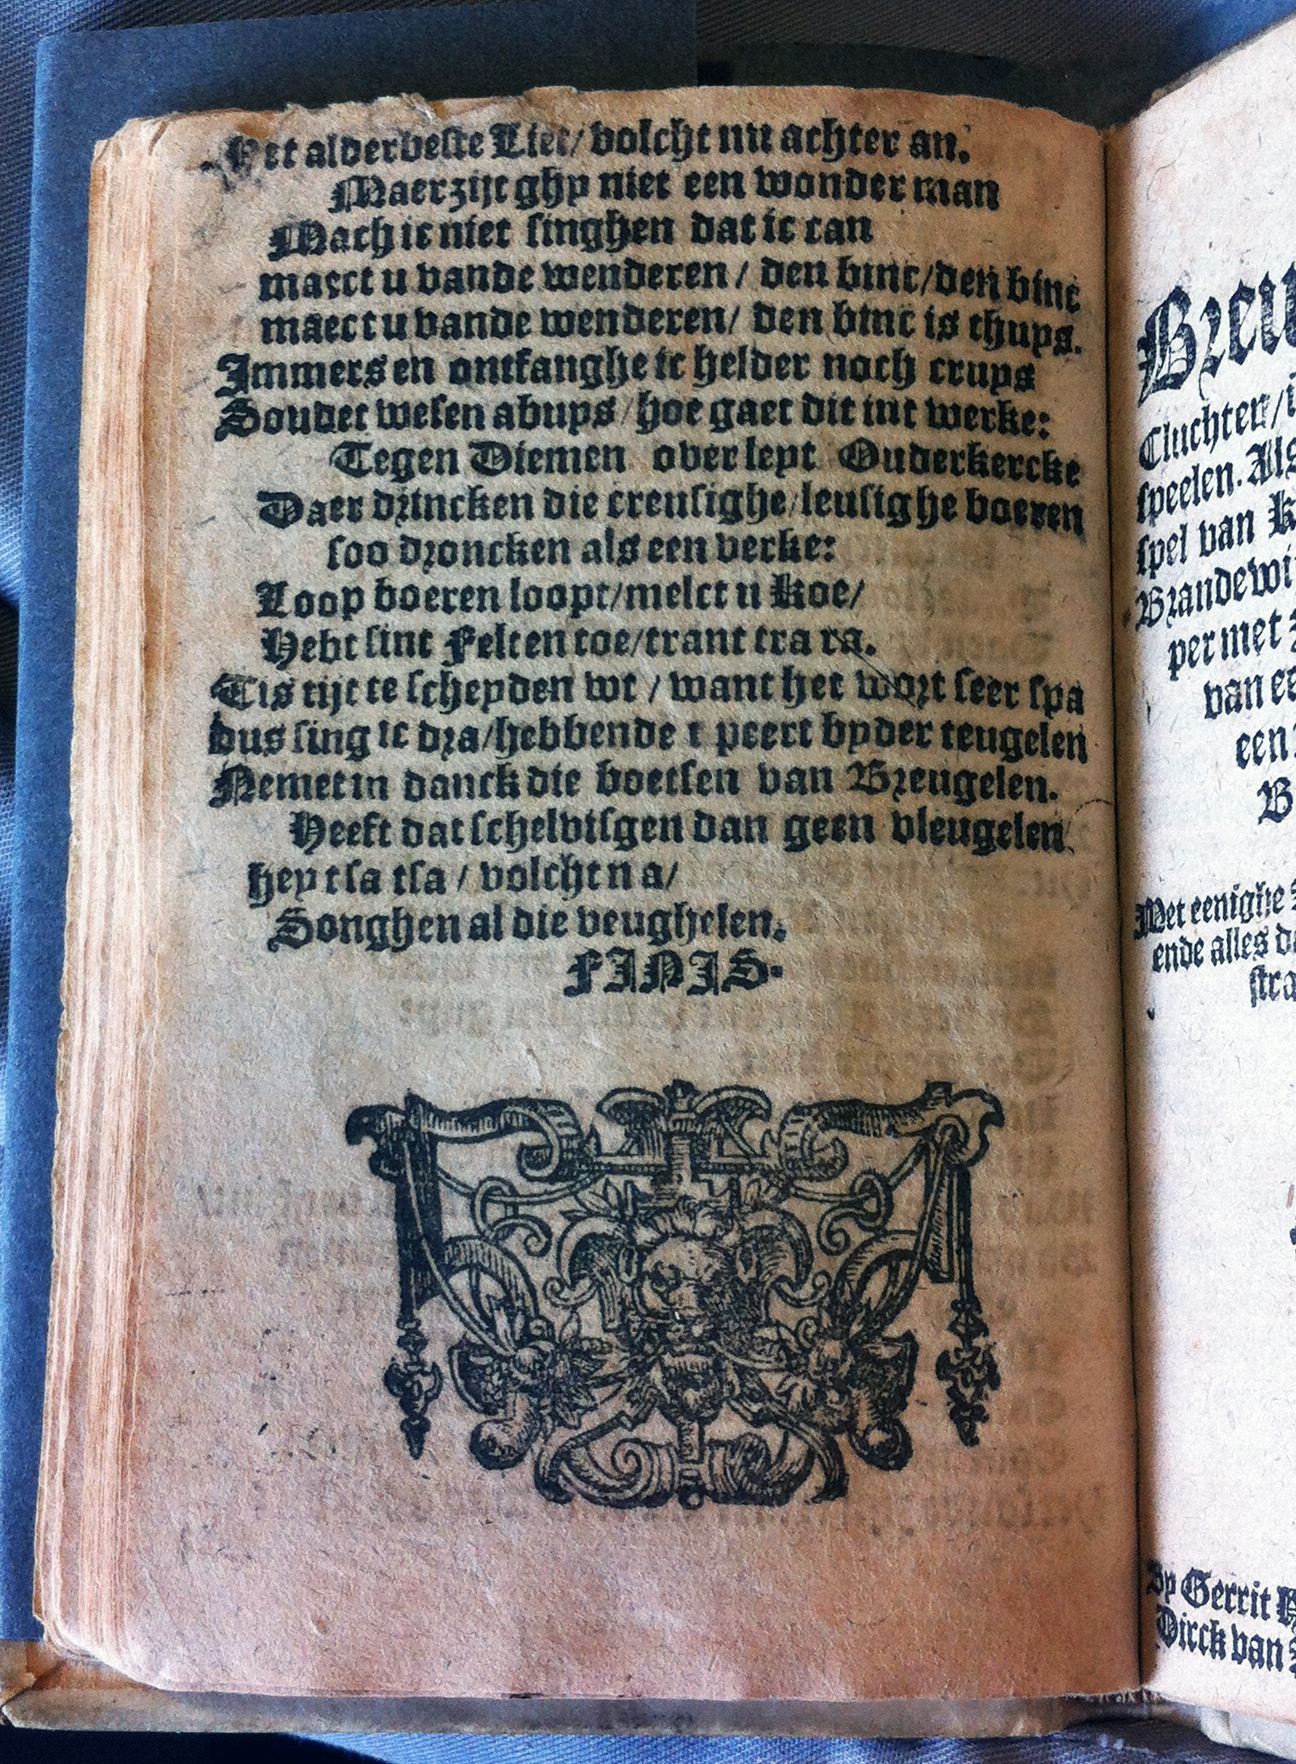 Het alderbeste Liet/ volcht nu achter an.
Maer zijt ghy niet een wonder man
Mach ic niet singhen dat ic can
maect u vande wenderen / den binc/den binc
maect u vande wenderen/ den binc is thuys.
Immers en ontfanghe ic helder noch cruys
Soudet wesen abuys/hoe gaet dit int werke:
Tegen Diemen over leyt Ouderkercke
Daer drincken die creusighe/leusighe boeren
soo droncken als een verke:
Loop boeren loopt/melct u Koe/
Hebt sint Felten toe/trant tra ra.
Tis tijt te scheyden wt / want het wort seer spa
dus sing ic dra/hebbende t peert byder teugelen
Nemet in danck die boetsen van Breugelen.
Heeft dat schelvisgen dan geen vleugelen
hey tsa tsa / volcht na/
Songhen al die veughelen.
FINIS.
Cluchten/
speelen. Als
spel van
Brandewi
per met
van ee
een
B
Met eenighe
ende alles da
stra
By Gerrit
Dirck van